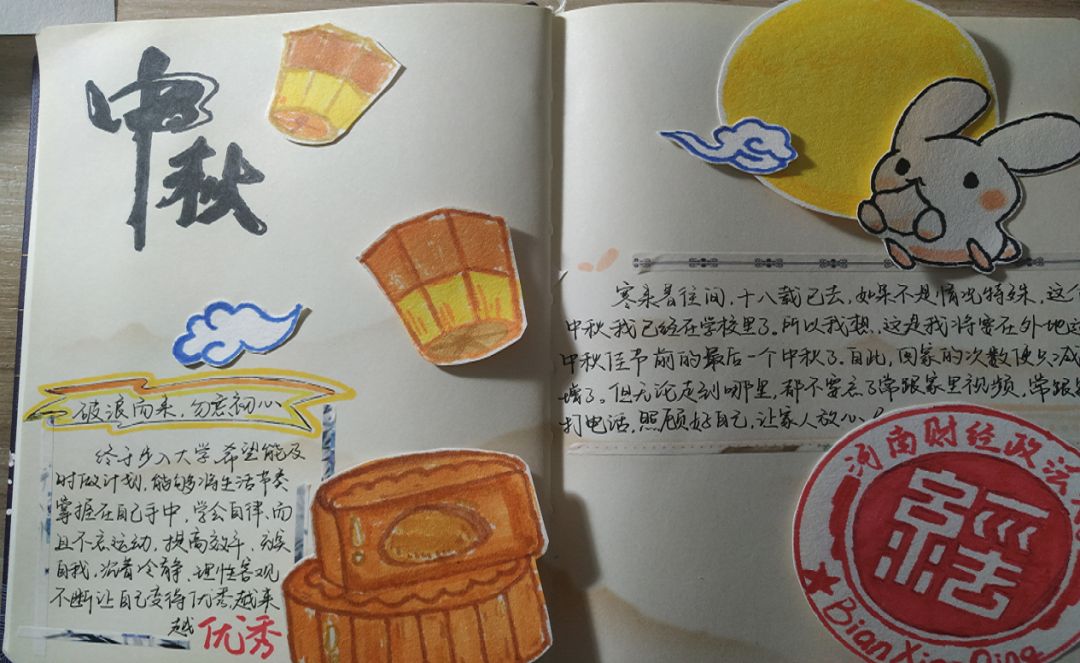 中秋
破浪而来,勿忘初心
终于步入大学,希望能及
时做计划,能够将生活节奏
掌握在自己手中,学会自律,而
且不忘运动,提高效率,
自我,沉着冷静,理性客观
不断让自己变得优秀,越来
越优秀
寒来暑往间,十八载已去,如果不是情况特殊,这个
中秋我已经在学校里了。所以我想,这是我将要在外地这
中秋佳节前的最后一个中秋了。自此,回家的次数便只减
了。但无论走到哪里,都不要忘了常跟家里视频,常跟
打电话,照顾好自己,让家人放心!
河南财经政法
BianXing Qing